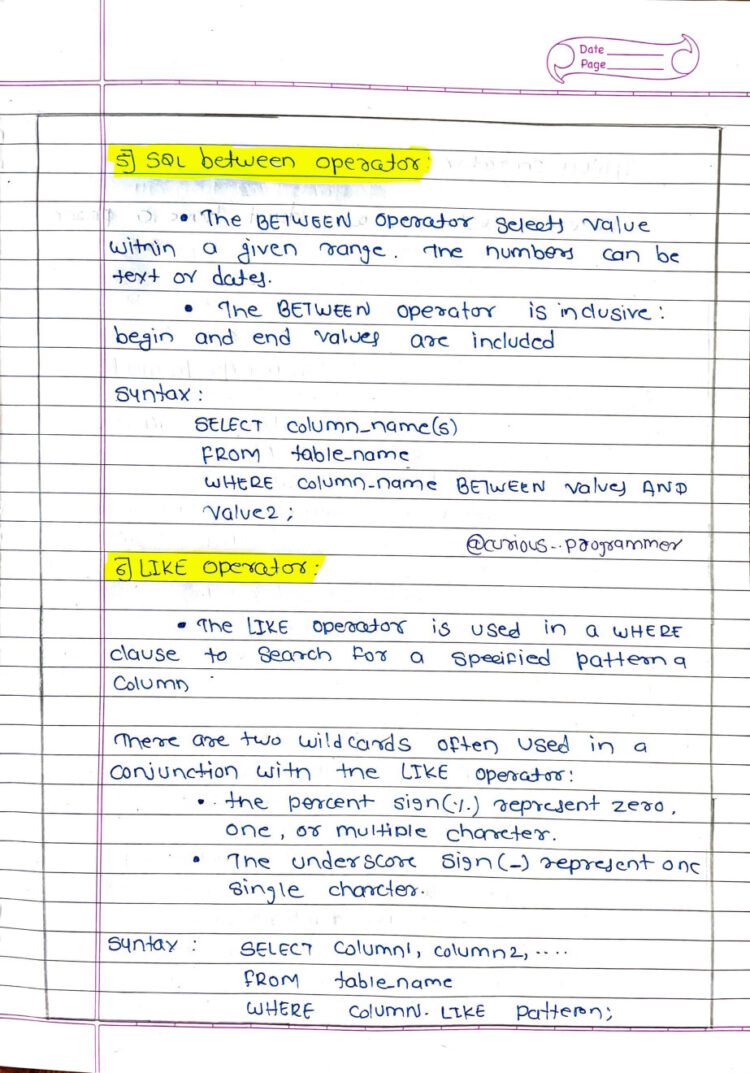 Date
Page
5] SQL between operator:
• The BETWEEN operator selects value
within a given range. The numbers can be
text or dates.
• The BETWEEN operator is inclusive:
begin and end values are included
Syntax:
SELECT column_name(s)
FROM table_name
WHERE column_name BETWEEN values AND
value2;
@curious_.programmer
6] LIKE operator:
• The LIKE operator is used in a WHERE
clause to search for a specified pattern a
column
There are two wildcards often used in a
conjunction with the LIKE operator:
• the percent sign(%) represent zero,
one, or multiple charecter.
• The underscore sign(_) represent one
single charcter.
Syntax: SELECT column1, column2, ....
FROM table_name
WHERE columnN LIKE pattern;